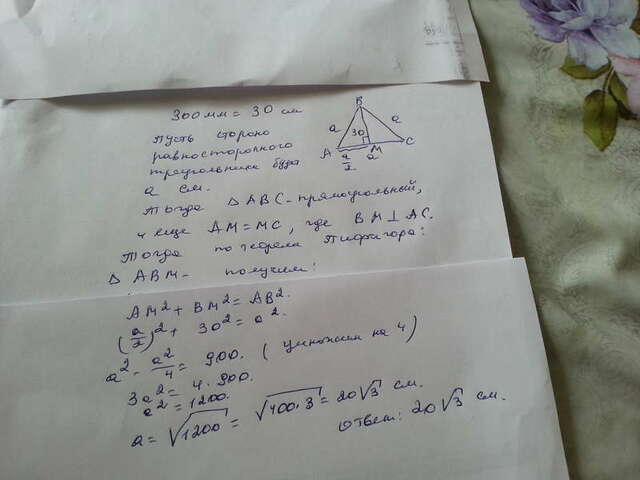 300 мм = 30 см
B
a
a
30
A
M
C
a/2
a
Пусть сторона
равностороннего
треугольника будет
a см.
Тогда △ABC - прямоугольный,
и еще AM = MC, где BM ⊥ AC.
Тогда по теореме Пифагора:
△ABM - получим:
AM² + BM² = AB².
(a/2)² + 30² = a².
a² - a²/4 = 900. (умножим на 4)
3a² = 4·900.
a² = 1200.
a = √1200 = √400·3 = 20√3 см.
Ответ: 20√3 см.